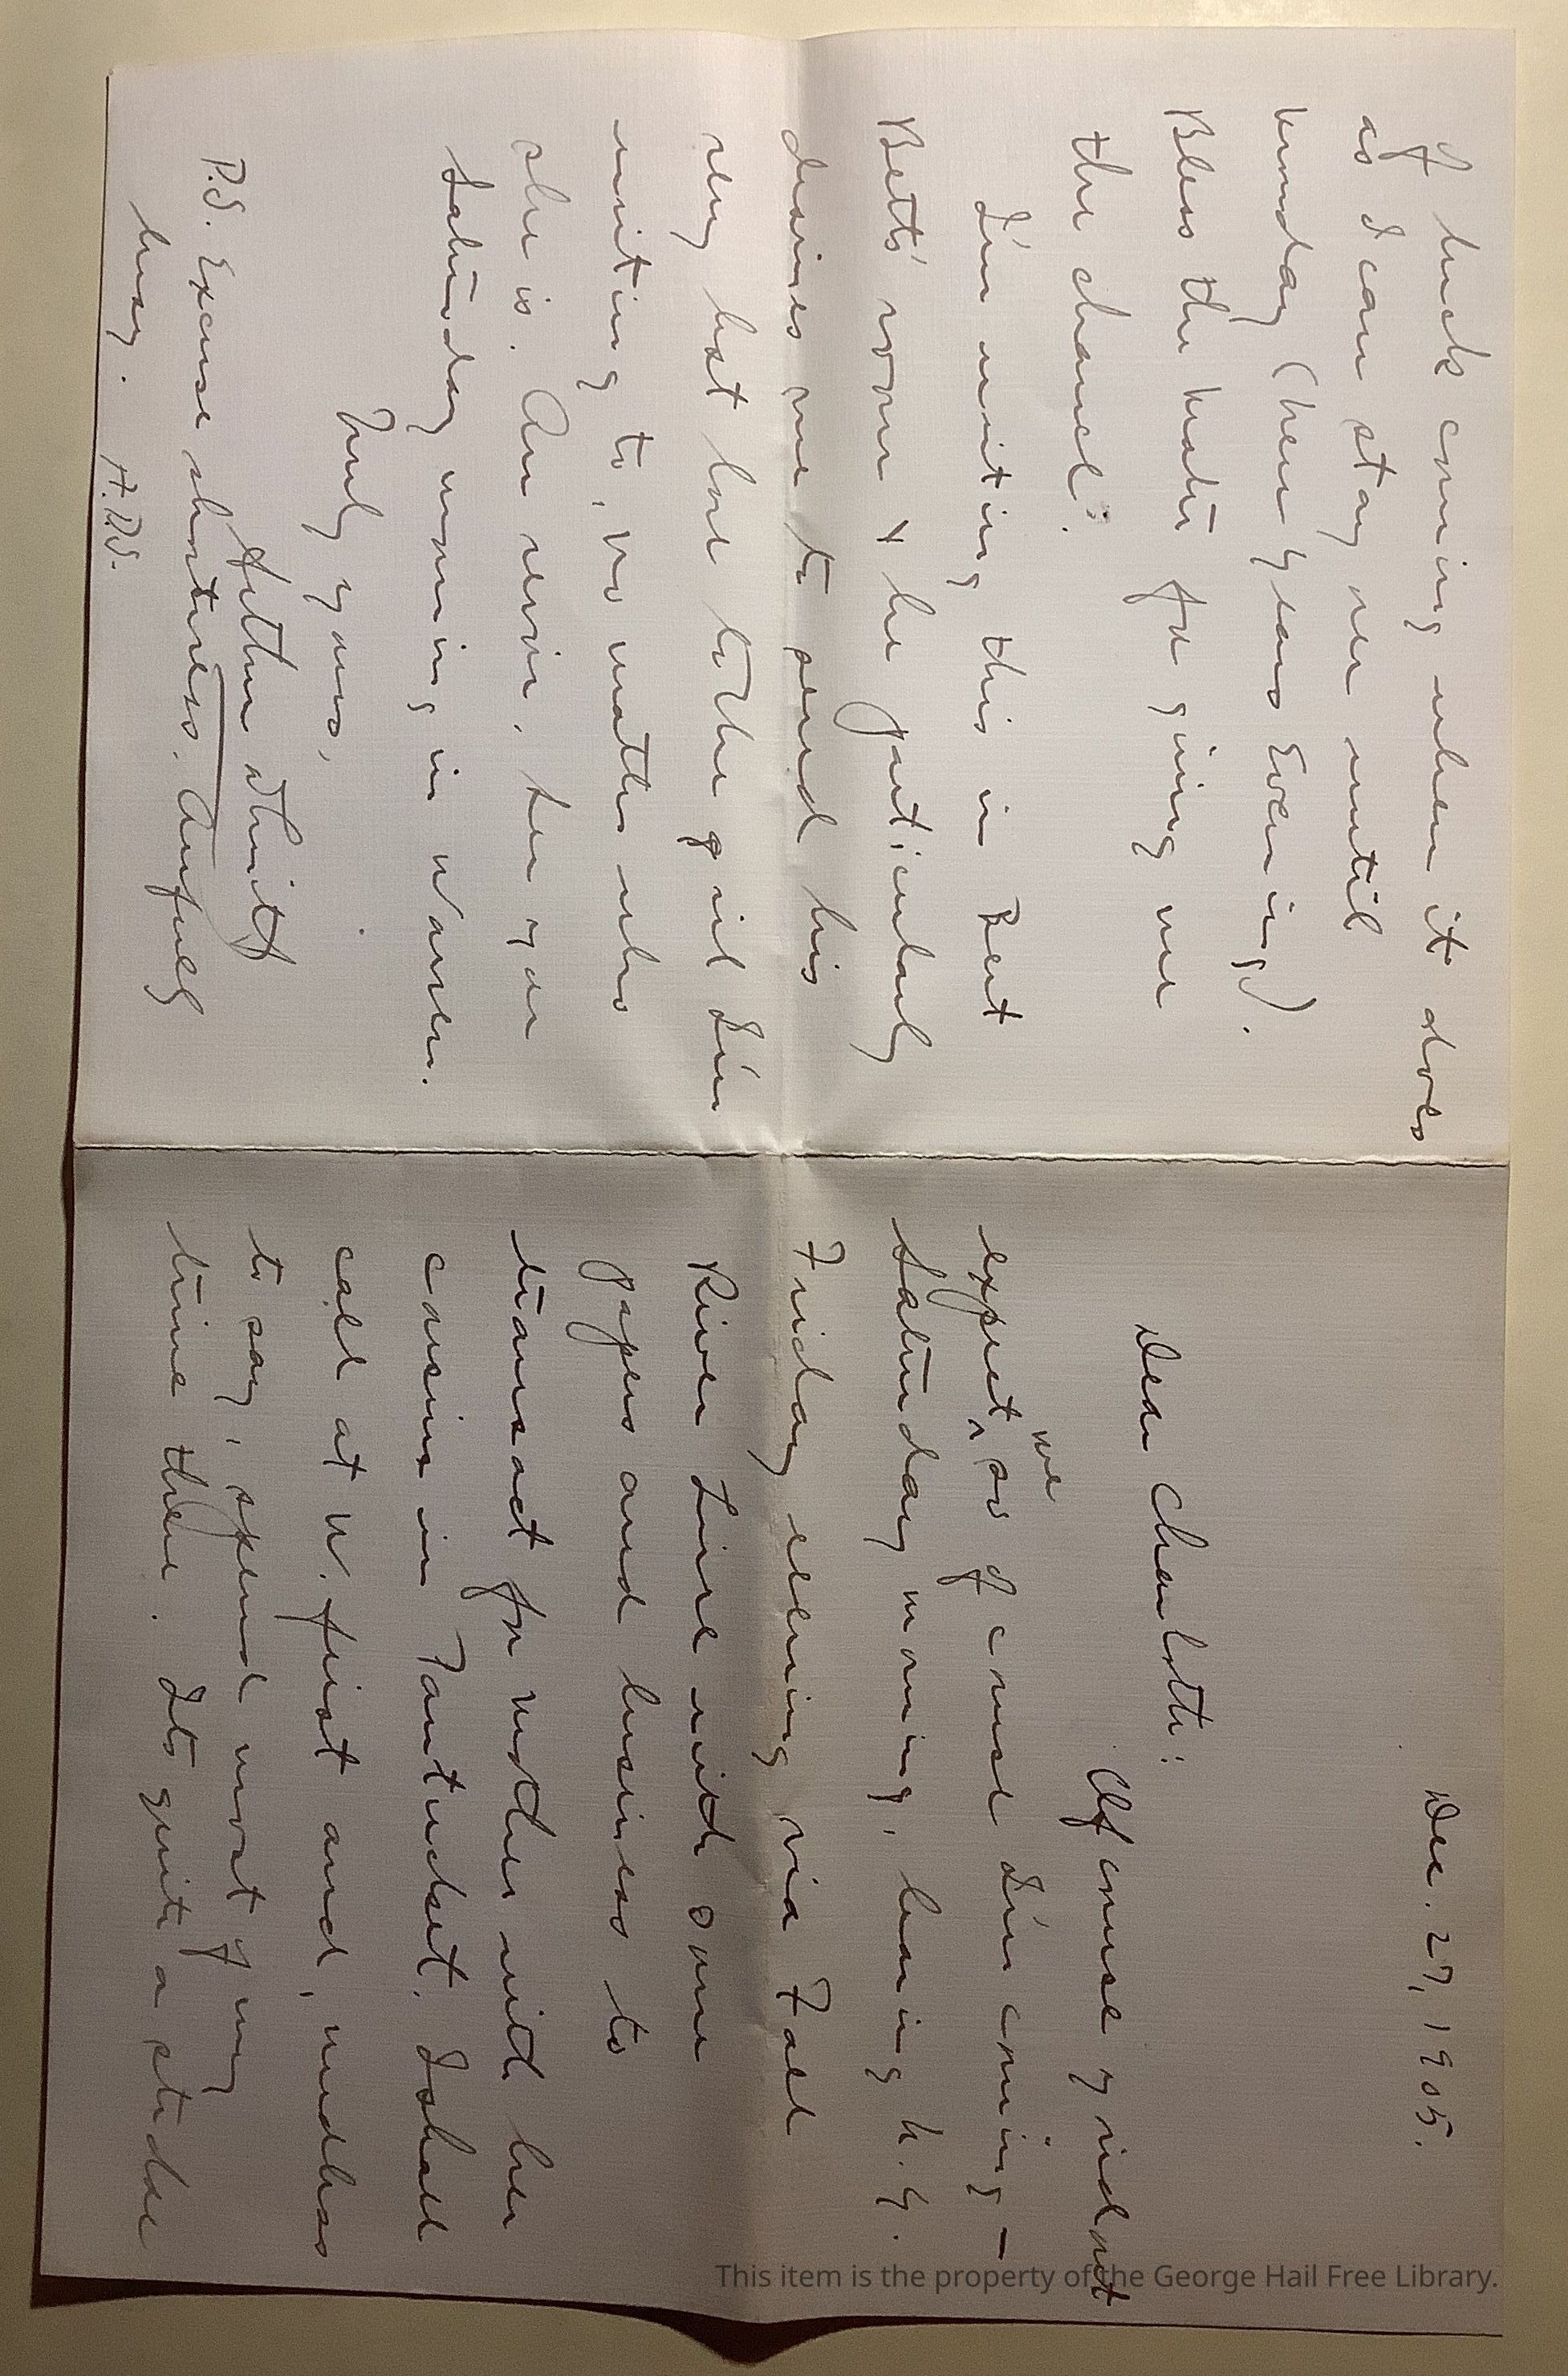 Dec. 27, 1905.
Dear Charlotte:
Of course you'd not
we
expect ^ so of course I'm coming –
Saturday morning, leaving N.Y.
Friday evening via Fall
River Line with some
papers and business to
transact for mother with her
cousin in Pawtucket. I shall
call at W. first and, needless
to say, spend most of my
time there. It's quite a streak
of luck coming when it does
as I can stay over until
Monday (New Years Evening).
Bless the mater for giving me
the chance!
I'm writing this in Bert
Betts' room & he particularly
desires me to send his
very best love to the girl I'm
writing to, no matter who
she is. Au revoir, see you
Saturday morning in Warren.
Truly yours,
Arthur
P.S. Excuse shortness. Awfully
busy. A.D.S.
This item is the property of the George Hail Free Library.